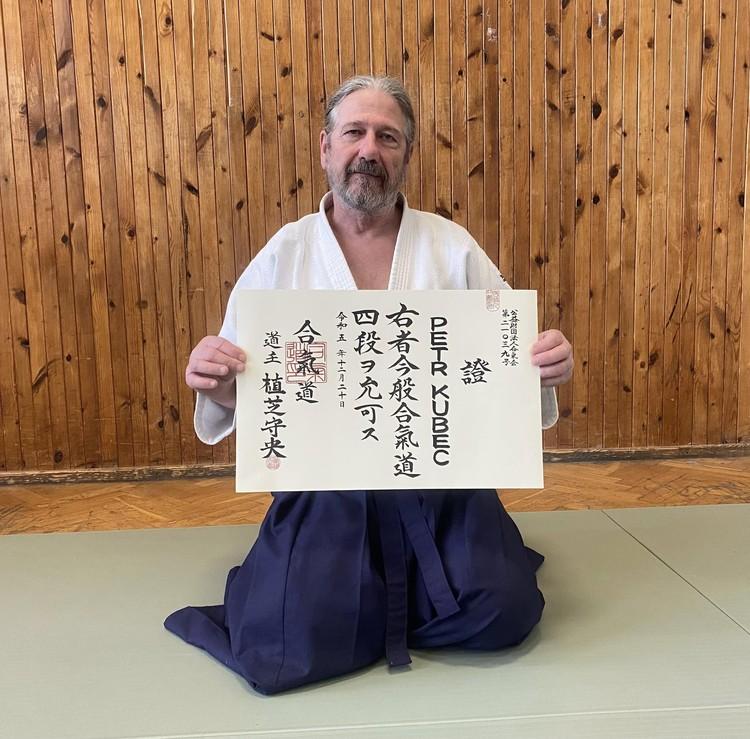 公益財団法人合気会
第二一〇三九号
證
PETR KUBEC
右者今般合氣道
四段ヲ允可ス
令和五年十二月二十日
合氣道
道主 植芝守央